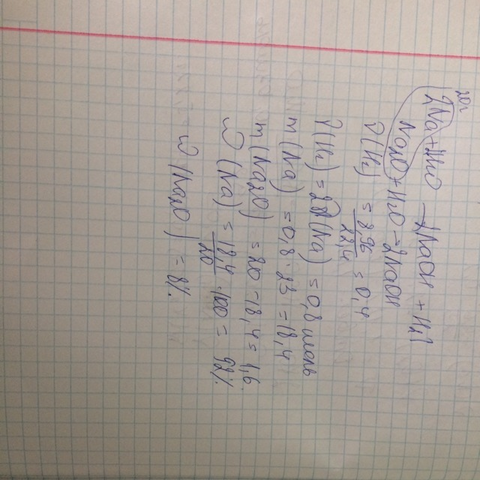 20г
2Na + H2O → 2NaOH + H2↑
Na2O + H2O → 2NaOH
ν(H2) = 8,96 / 22,4 = 0,4
ν(H2) = 2ν(Na) = 0,8 моль
m(Na) = 0,8 · 23 = 18,4
m(Na2O) = 20 - 18,4 = 1,6
ω(Na) = 18,4 / 20 · 100 = 92%
ω(Na2O) = 8%.